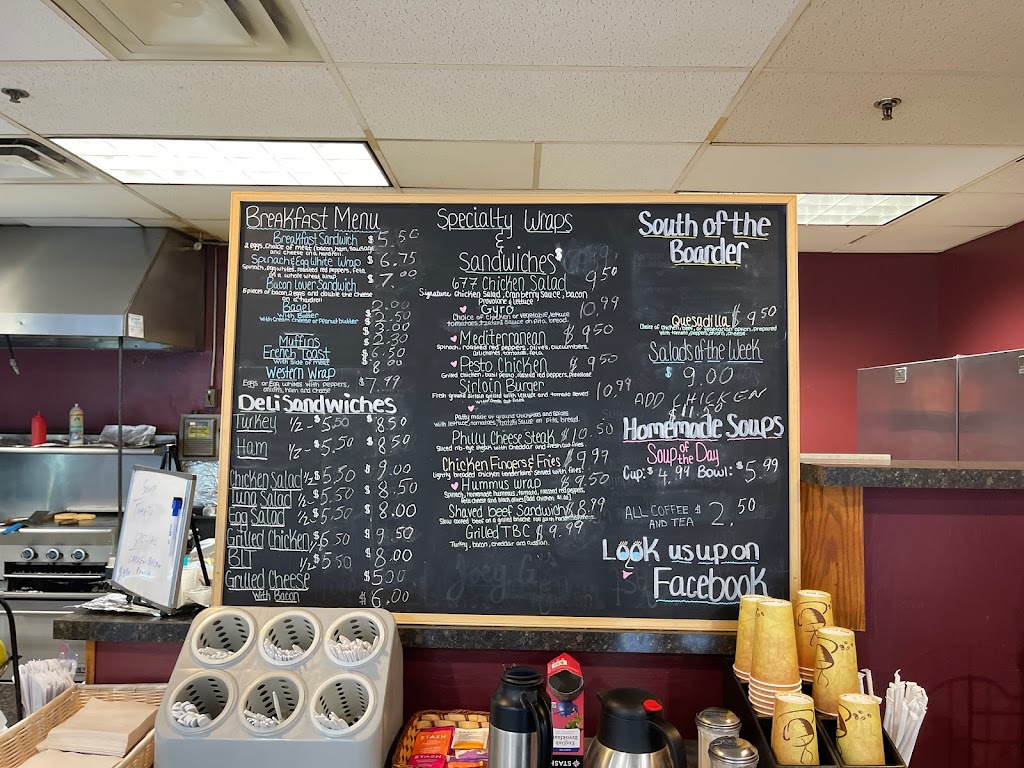 Breakfast Menu
Breakfast Sandwich $ 5.50
2 eggs, choice of meat (bacon, ham, sausage
and cheese on a hard roll.
Spinach & Egg White Wrap $ 6.75
Spinach, egg whites, roasted red peppers, feta,
on a whole wheat wrap
Bacon Lover Sandwich $ 7.00
5 pieces of bacon, 2 eggs and double the cheese
on a hardroll
Bagel 2.00
with Butter 2.50
with Cream cheese or Peanut butter
Muffins 2.30
French Toast 6.50
With side of meat 8.00
Western Wrap
Eggs or Egg whites with peppers, $7.99
onions, ham and cheese
Deli Sandwiches
Turkey 1/2-$5.50 $ 8.50
Ham 1/2-5.50 $ 8.50
Chicken Salad 1/2 $5.50 $ 9.00
Tuna Salad 1/2-5.50 $ 8.50
Egg Salad 1/2-5.50 $ 8.00
Grilled Chicken 1/2 $5.50 $ 9.50
BLT 1/2-5.50 $ 8.00
Grilled Cheese $ 5.00
with Bacon $ 6.00
Specialty Wraps
&
Sandwiches
677 Chicken Salad 9.50
Signature Chicken Salad, Cranberry Sauce, bacon
Provolone & lettuce
Gyro 10.99
Choice of chicken or vegetable, lettuce
tomatoes, Tzatziki Sauce on pita, bread.
Mediterranean $ 9.50
Spinach, roasted red peppers, olives, cucumbers,
artichokes, tomatoes, feta.
Pesto Chicken $ 9.50
Grilled chicken, basil pesto, roasted red peppers, provolone
Sirloin Burger 10.99
Fresh ground sirloin grilled with lettuce and tomato served
with french fries
Patty made of ground chickpeas and spices
with lettuce, tomatoes, Tzatziki Sauce on pita, bread.
Philly Cheese Steak $10.50
Sliced rib-eye angus with cheddar and french fries.
Chicken Fingers & Fries $9.99
Lightly breaded chicken tenderloins served with fries.
Hummus wrap $9.50
Spinach, homemade hummus, tomato, roasted red peppers,
feta cheese and black olives
Shaved beef Sandwich $8.99
Slow cooked beef on a grilled brioche
Grilled TBC $9.99
Turkey, bacon, cheddar and russian.
Joey G.
South of the
Boarder
Quesadilla $ 9.50
Choice of chicken, beef, or vegetarian option, prepared
with tomato, peppers, onions, cheese
Salads of the Week
$ 9.00
ADD CHICKEN
Homemade Soups
Soup of the Day
Cup: $4.99 Bowl: $5.99
ALL COFFEE $ 2.50
AND TEA
Look us up on
Facebook
Soup
STASH
English
Breakfast
STASH